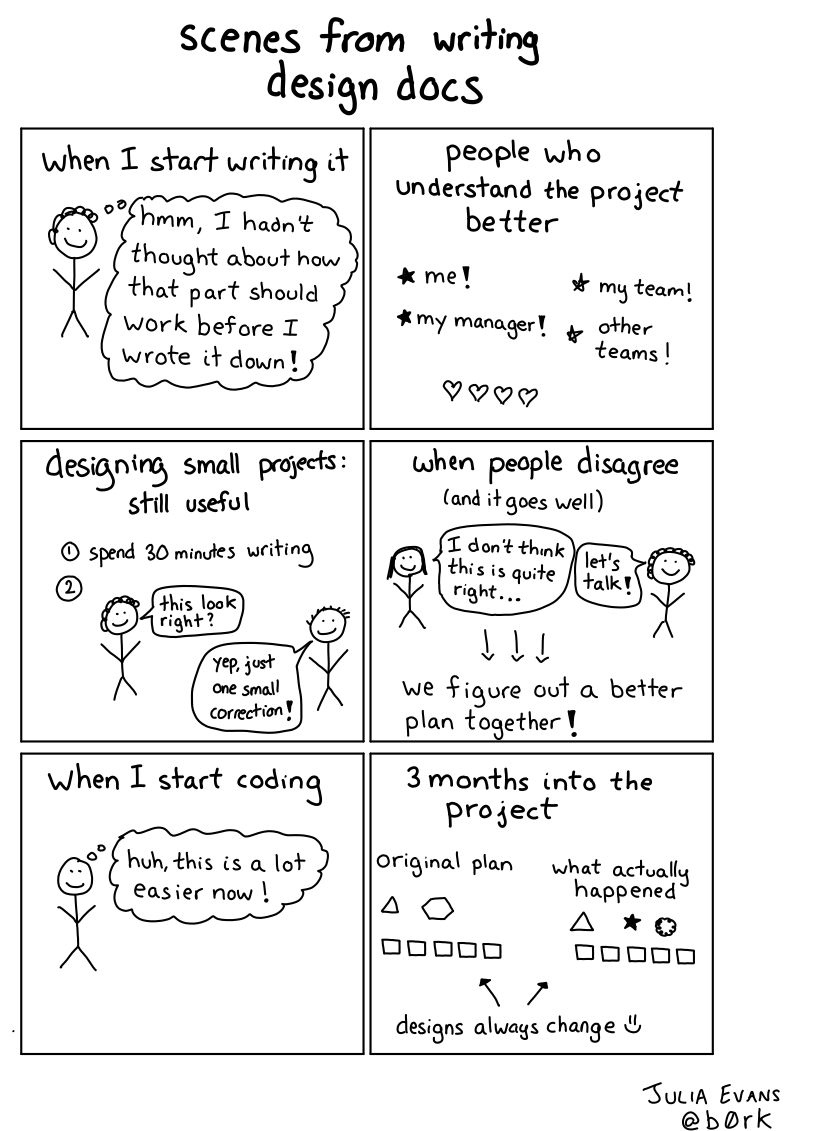 scenes from writing
design docs
when I start writing it
hmm, I hadn't
thought about how
that part should
work before I
wrote it down!
people who
understand the project
better
★ me!
★ my manager!
☆ my team!
☆ other
teams!
♡ ♡ ♡ ♡
designing small projects:
still useful
① spend 30 minutes writing
②
this look
right?
yep, just
one small
correction!
when people disagree
(and it goes well)
I don't think
this is quite
right...
let's
talk!
↓ ↓ ↓
we figure out a better
plan together!
when I start coding
huh, this is a lot
easier now!
3 months into the
project
original plan
what actually
happened
designs always change ☺
JULIA EVANS
@b0rk